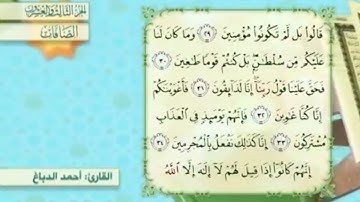 الجزء الثالث والعشرون
الصافات
قَالُوا بَل لَّمْ تَكُونُوا مُؤْمِنِينَ ﴿٢٩﴾ وَمَا كَانَ لَنَا
عَلَيْكُم مِّن سُلْطَانٍ بَلْ كُنتُمْ قَوْمًا طَاغِينَ ﴿٣٠﴾
فَحَقَّ عَلَيْنَا قَوْلُ رَبِّنَا إِنَّا لَذَائِقُونَ ﴿٣١﴾ فَأَغْوَيْنَاكُمْ
إِنَّا كُنَّا غَاوِينَ ﴿٣٢﴾ فَإِنَّهُمْ يَوْمَئِذٍ فِي الْعَذَابِ
مُشْتَرِكُونَ ﴿٣٣﴾ إِنَّا كَذَٰلِكَ نَفْعَلُ بِالْمُجْرِمِينَ ﴿٣٤﴾
إِنَّهُمْ كَانُوا إِذَا قِيلَ لَهُمْ لَا إِلَٰهَ إِلَّا اللَّهُ
القارئ: أحمد الدباغ